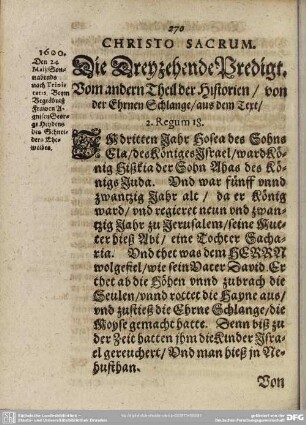 270
CHRISTO SACRUM.
1600.
Den 24
Maij Son-
nabends
nach Trini-
tatis. Beym
Begräbnüß
Frawen A-
George
Heydens
des Schnei-
ders Ehe-
weibes.
Die Dreyzehende Predigt.
Vom andern Theil der Historien / von
der Ehrnen Schlange / aus dem Text /
2. Regum 18.
IM dritten Jahr Hosea des Sohns
Ela / des Königes Jsrael / ward Kö-
nig Hißkia der Sohn Ahas des Kö-
nigs Juda. Vnd war fünff vnnd
zwantzig Jahr alt / da er König
ward / vnd regieret neun vnd zwan-
tzig Jahr zu Jerusalem / seine Mut-
ter hieß Abi / eine Tochter Sacha-
ria. Vnd thet was dem HERRN
wolgefiel / wie sein Vater David. Er
thet ab die Höhen vnnd zubrach die
Seulen / vnnd rottet die Hayne aus /
vnd zustieß die Ehrne Schlange / die
Moyse gemacht hatte. Denn biß zu
der Zeit hatten jhm die Kinder Jsra-
el gereuchert / Vnd man hieß jn Ne-
husthan.
Von